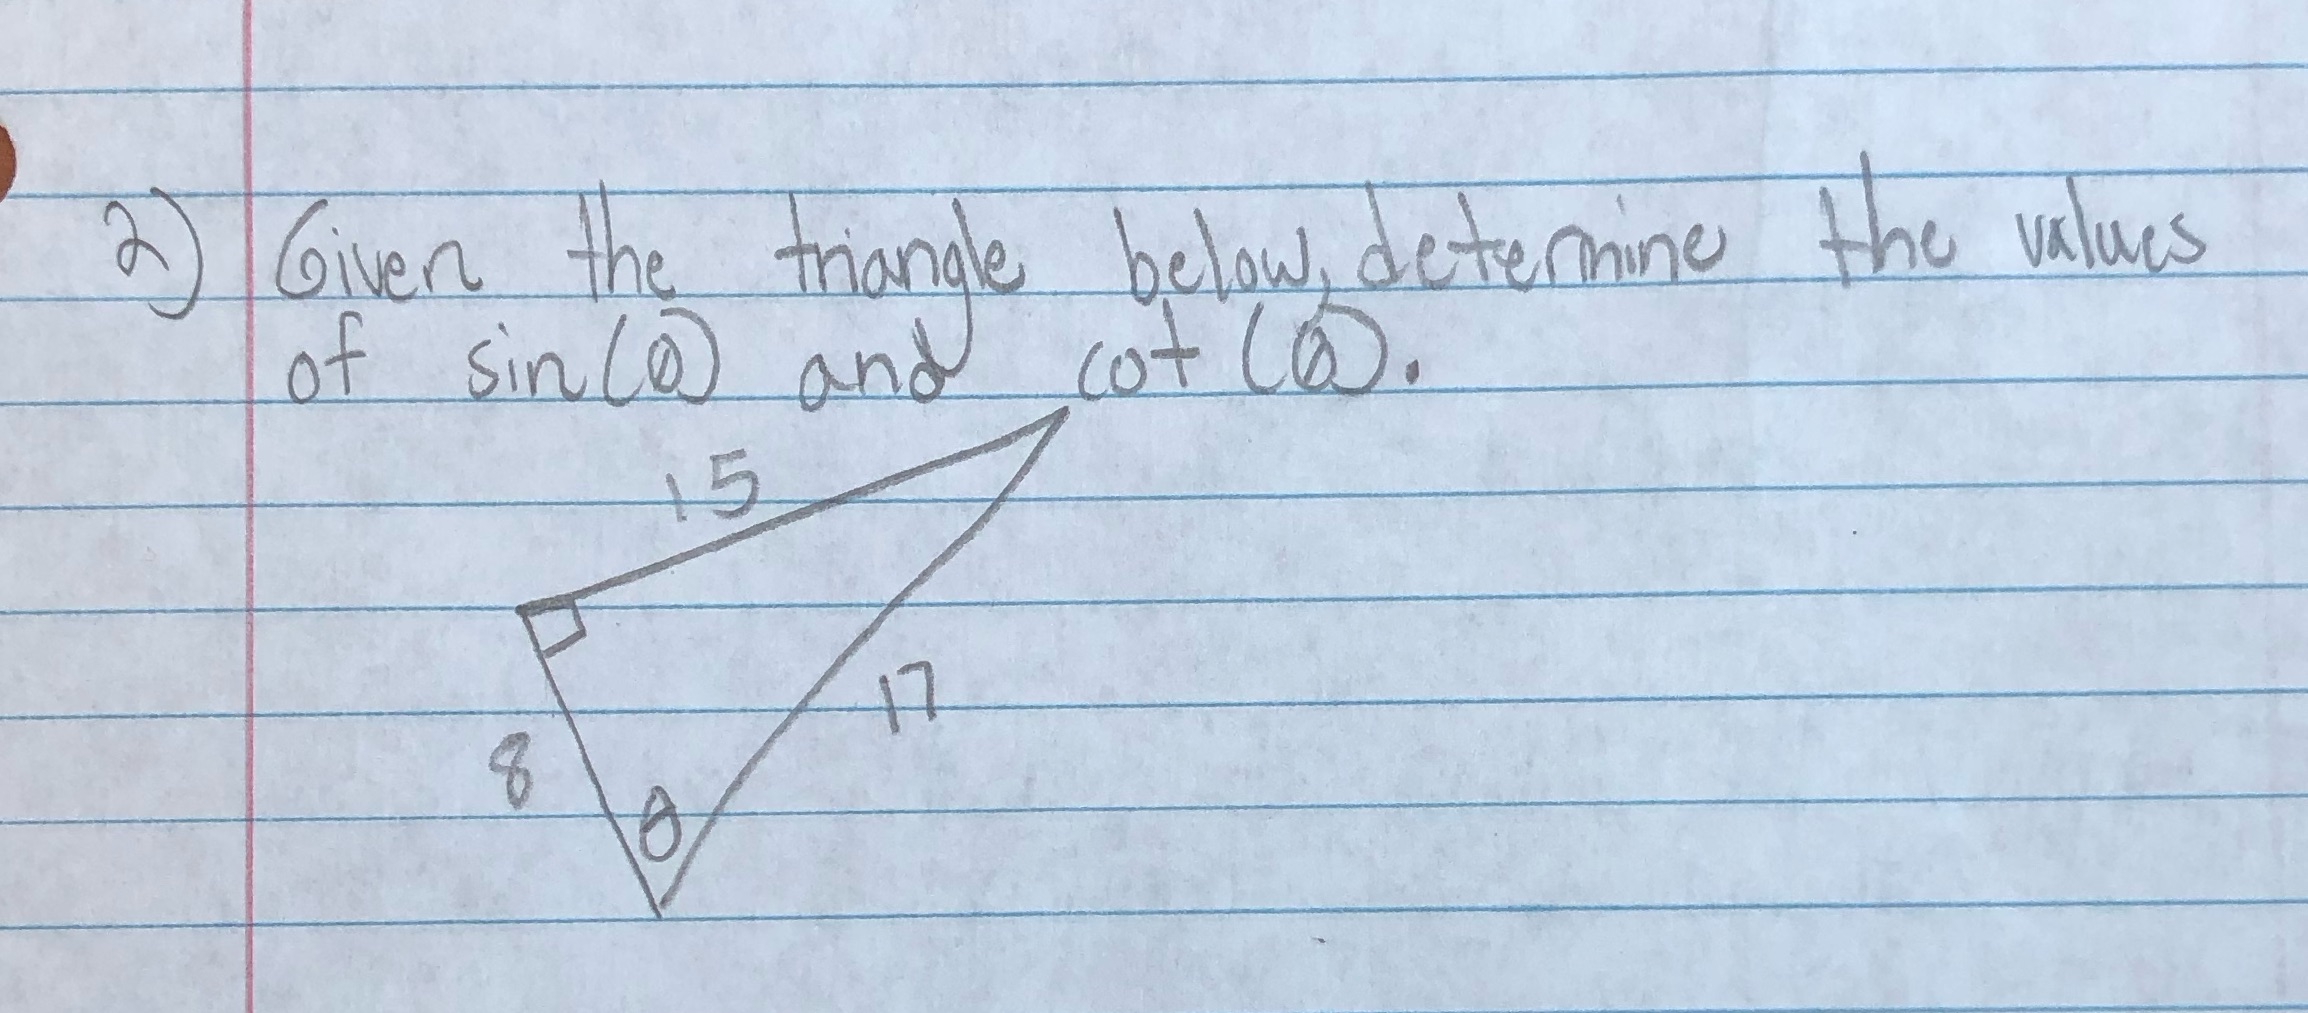 2) Given the triangle below, determine the values
of sin(θ) and cot(θ).
15
17
8
θ